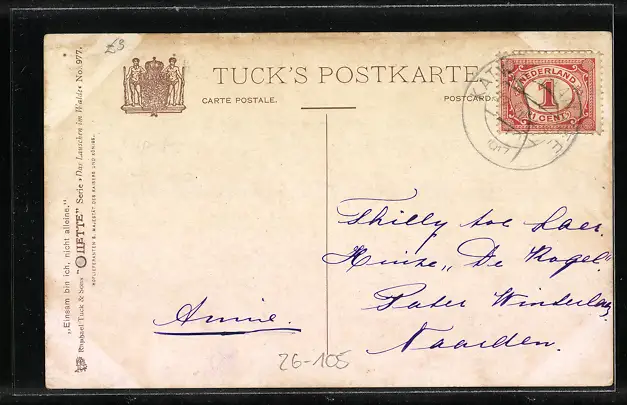 £3
TUCK'S POSTKARTE
CARTE POSTALE. POSTCARD.
NEDERLAND
1
1 CENT
KAT
"Einsam bin ich nicht alleine."
Raphael Tuck & Sons "OILETTE" Serie "Das Lauschen im Walde" No. 977.
HOFLIEFERANTEN S. MAJESTÄT DES KAISERS UND KÖNIGS.
Thilly van Laer.
Huize "De Kogel".
Pater Wijnterlaan
Naarden.
Annie.
26-105